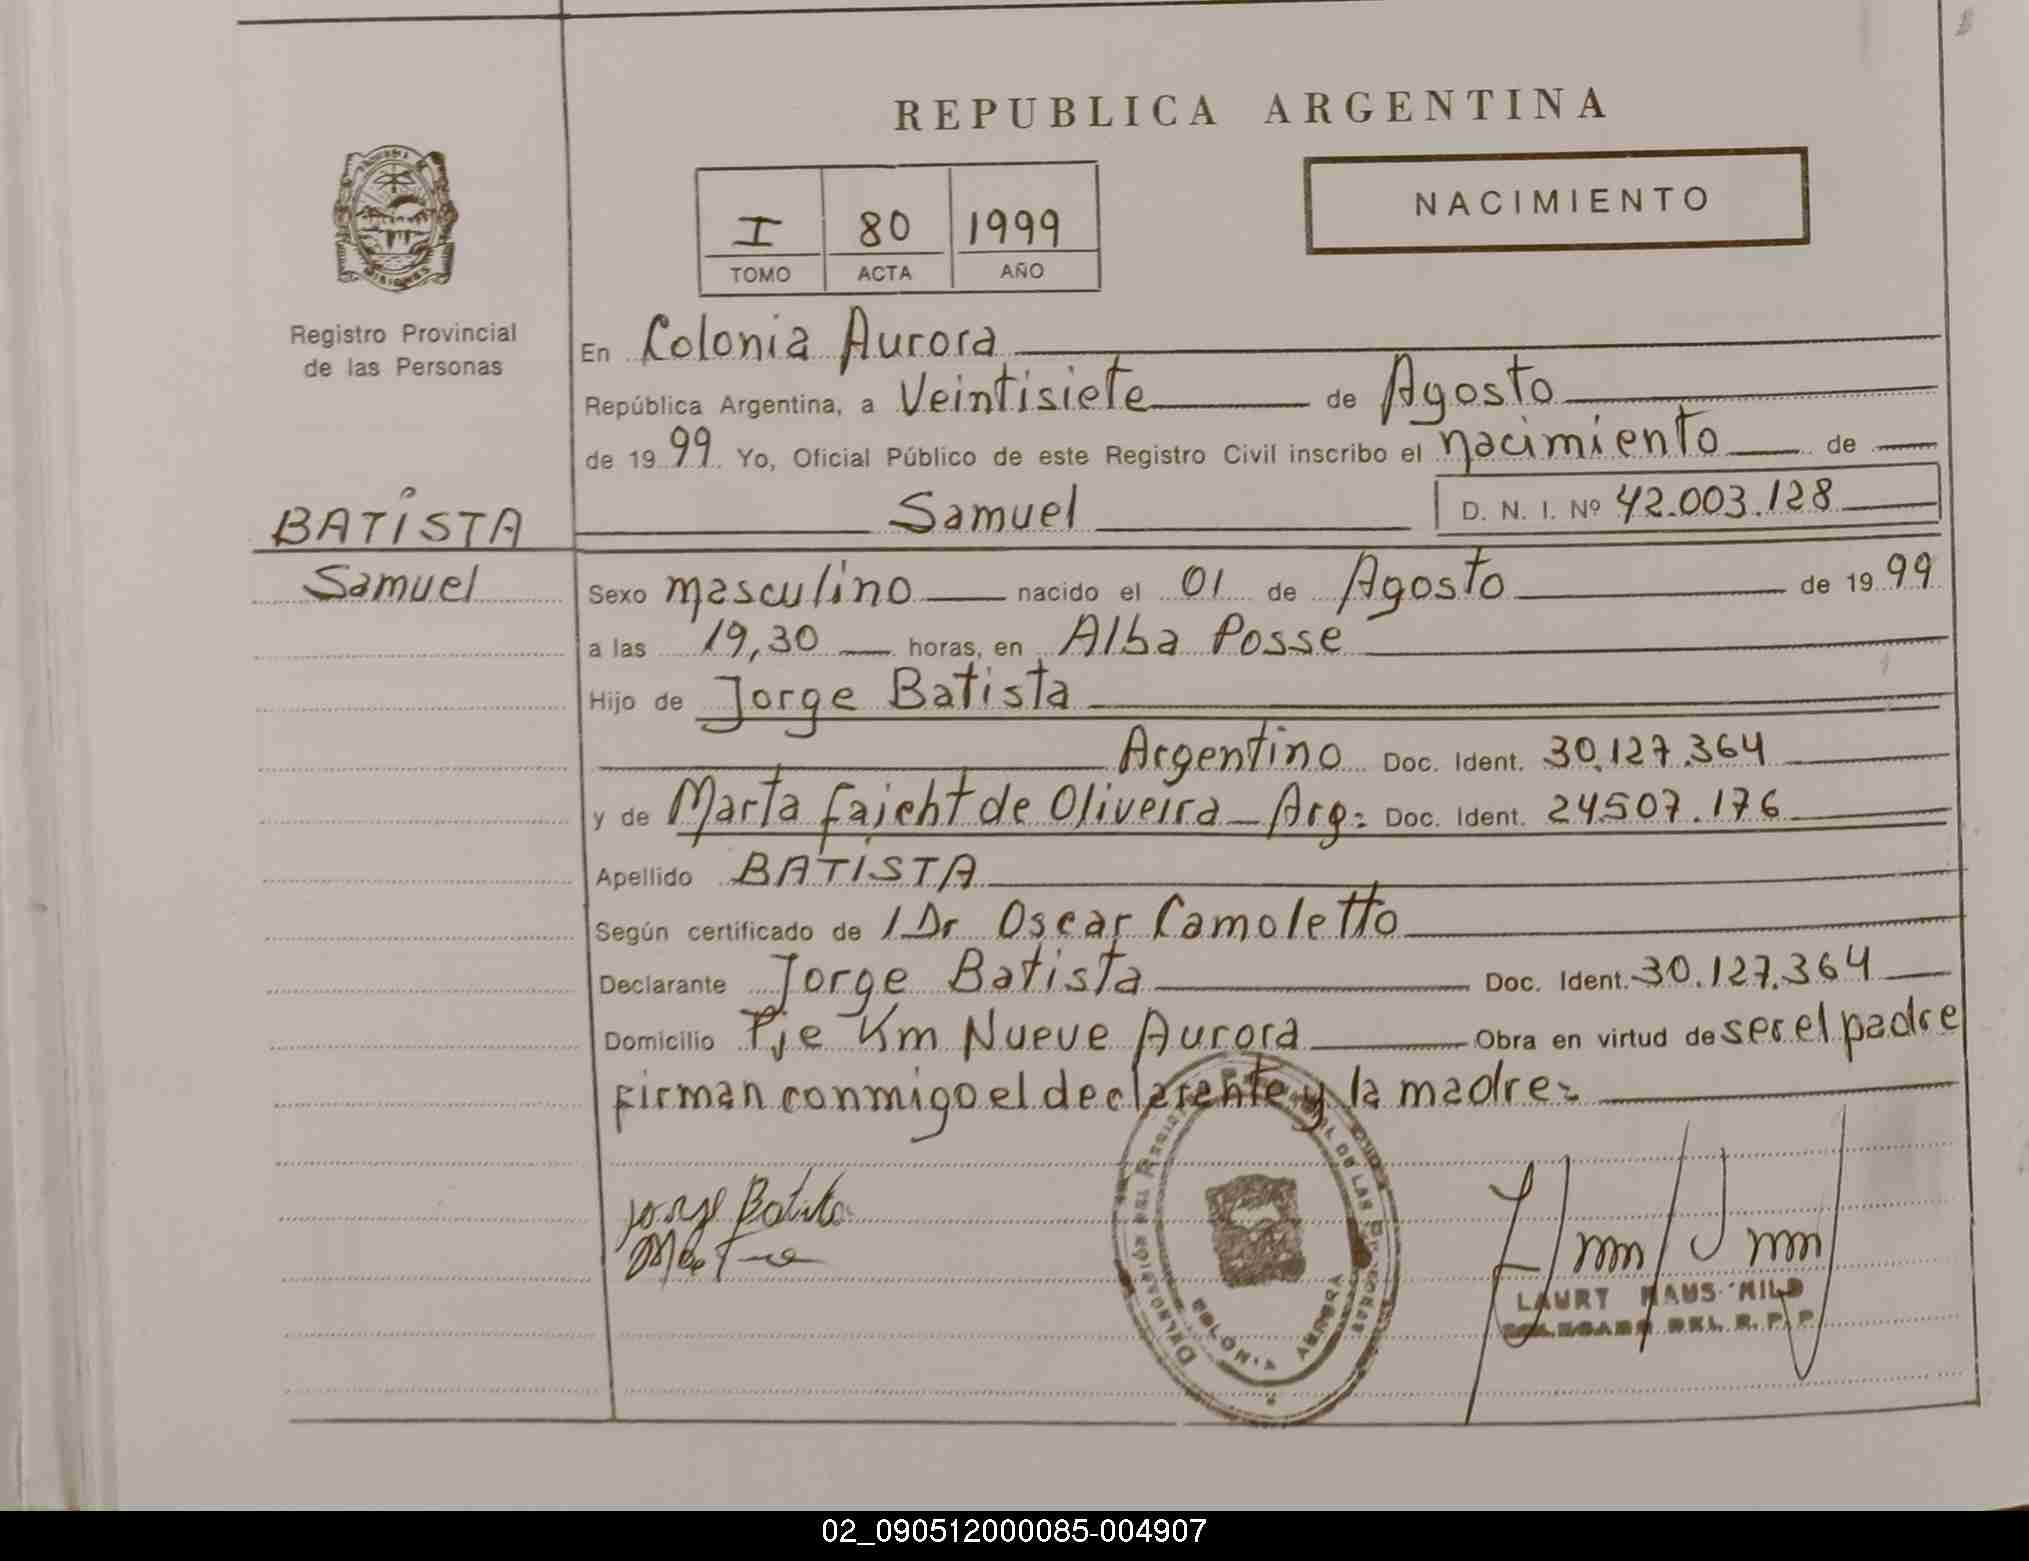 REPUBLICA ARGENTINA
NACIMIENTO
I 80 1999
TOMO ACTA AÑO
Registro Provincial
de las Personas
En Colonia Aurora
República Argentina, a Veintisiete de Agosto
de 1999. Yo, Oficial Público de este Registro Civil inscribo el nacimiento de
BATISTA
Samuel
D. N. I. Nº 42.003.128
Samuel
Sexo masculino nacido el 01 de Agosto de 1999
a las 19,30 horas, en Alba Posse
Hijo de Jorge Batista
Argentino Doc. Ident. 30.127.364
y de Marta Faicht de Oliveira - Arg: Doc. Ident. 24507.176
Apellido BATISTA
Según certificado de / Dr Oscar Camoletto
Declarante Jorge Batista Doc. Ident. 30.127.364
Domicilio Pje Km Nueve Aurora Obra en virtud de ser el padre
firman conmigo el declarente y la madre:
Jorge Batista
COLONIA AURORA
LAURY HAUS MILD
DELEGADO DEL R. P. P.
02_090512000085-004907